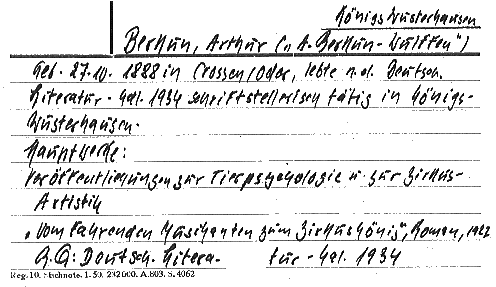 Königs Wusterhausen
Berkun, Arthur („A. Berkun-Wulffen")
Geb. 27.10. 1888 in Crossen/Oder, lebte n.d. Deutsch.
Literatur-Kal. 1934 schriftstellerisch tätig in Königs-
Wusterhausen.
Hauptwerke:
Veröffentlichungen zur Tierpsychologie u. zur Zirkus-
Artistik
„Vom fahrenden Musikanten zum Zirkuskönig", Roman, 1922
G.Q: Deutsch. Litera- tur-Kal. 1934
Reg. 10. 1.50. 232000. A.803. S. 4062